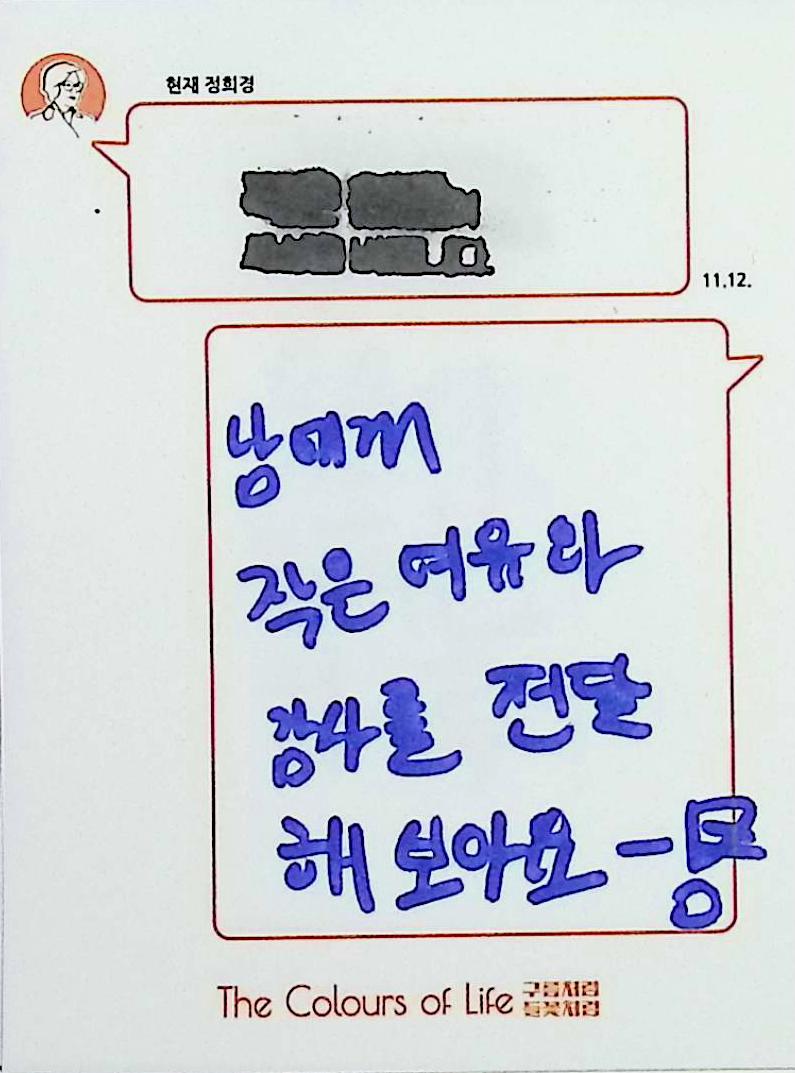 현재 정희경
11.12.
작은 여유와
감사를 전달
해 보아요 -
The Colours of Life 구름처럼
들꽃처럼